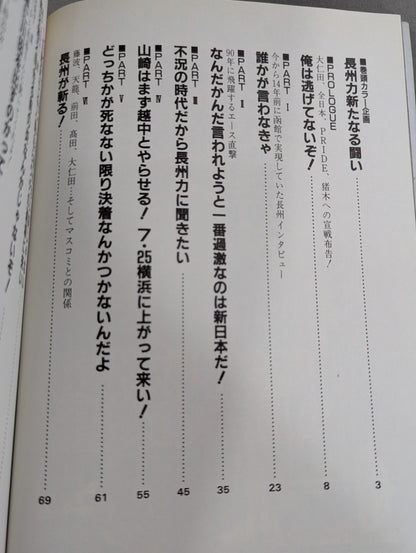 ■巻頭カラー企画
長州力新たなる闘い 3
■PROLOGUE
大仁田、全日本、PRIDE、猪木への宣戦布告!
俺は逃げてないぞ! 8
■PART Ⅰ
今から14年前に函館で実現していた長州インタビュー
誰かが言わなきゃ 23
■PART Ⅱ
90年に飛躍するエース直撃
なんだかんだ言われようと一番過激なのは新日本だ! 35
■PART Ⅲ
不況の時代だから長州力に聞きたい 45
■PART Ⅳ
山崎はまず越中とやらせる! 7・25横浜に上がって来い! 55
■PART Ⅴ
どっちかが死なない限り決着なんかつかないんだよ 61
■PART Ⅵ
藤波、天龍、前田、髙田、大仁田…そしてマスコミとの関係
長州が斬る! 69